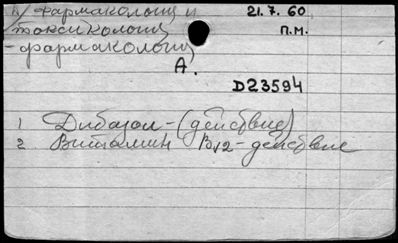 п/ фармакологи и 21.7.60
токсикологи П.М.
- фармакологи
А.
D23594
1 Дибазол - (действие)
2 Витамин B12 - действие